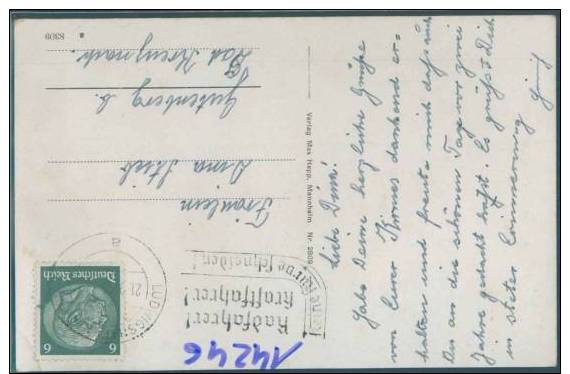 Liebe Dina!
Habe Deine herzliche Grüße
von Eurer Kirmes dankend er=
halten und freute mich daß auch
Du an die schönen Tage vor zwei
Jahre gedacht hast. Es grüßt Dich
in steter Erinnerung
Fräulein
Dina
Gutenberg b.
Bad Kreuznach.
Verlag Max Happ, Mannheim Nr. 2809
a 8309
Radfahrer!
Kraftfahrer!
schneiden!
LUDWIGSH
a
Deutsches Reich
6 6
14246